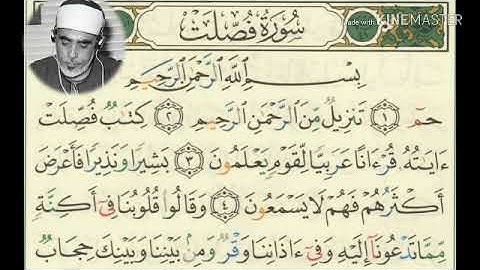 Made with KINEMASTER
سُورَةُ فُصِّلَتْ
بِسْمِ ٱللَّهِ ٱلرَّحْمَٰنِ ٱلرَّحِيمِ
حمٓ ۝١ تَنزِيلٌ مِّنَ ٱلرَّحْمَٰنِ ٱلرَّحِيمِ ۝٢ كِتَٰبٌ فُصِّلَتْ
ءَايَٰتُهُۥ قُرْءَانًا عَرَبِيًّا لِّقَوْمٍ يَعْلَمُونَ ۝٣ بَشِيرًا وَنَذِيرًا فَأَعْرَضَ
أَكْثَرُهُمْ فَهُمْ لَا يَسْمَعُونَ ۝٤ وَقَالُوا۟ قُلُوبُنَا فِىٓ أَكِنَّةٍ
مِّمَّا تَدْعُونَآ إِلَيْهِ وَفِىٓ ءَاذَانِنَا وَقْرٌ وَمِنۢ بَيْنِنَا وَبَيْنِكَ حِجَابٌ